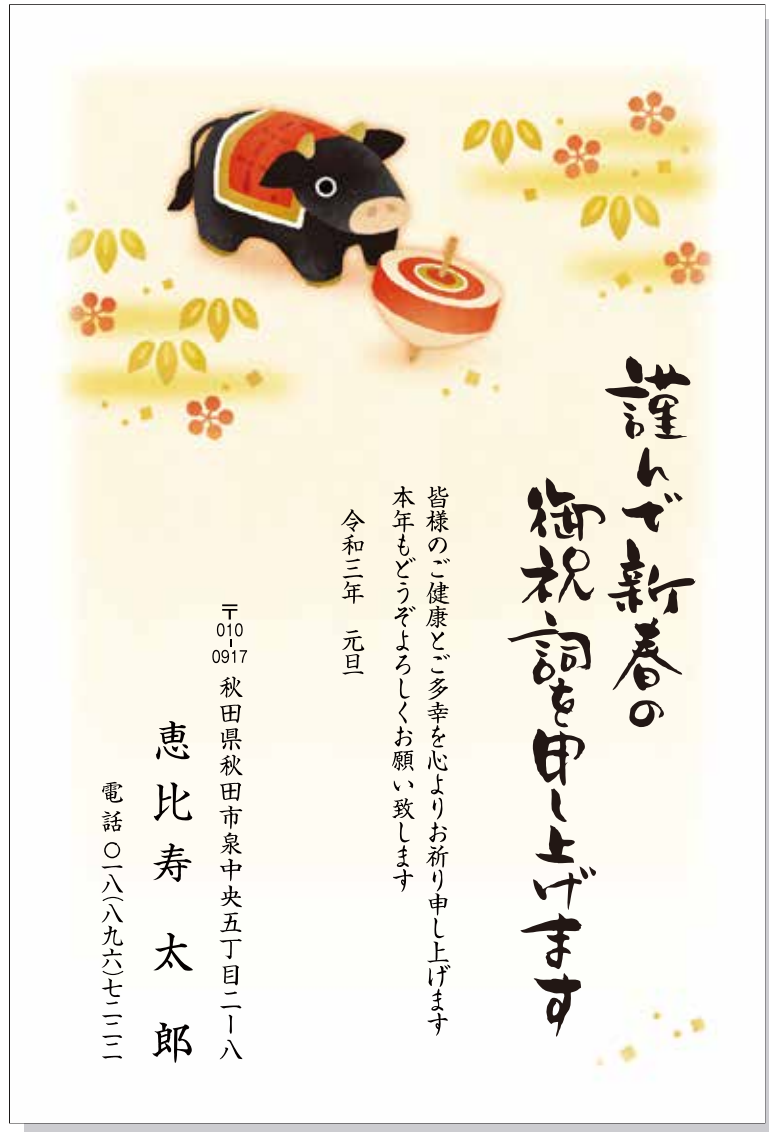 謹んで新春の
御祝詞を申し上げます
皆様のご健康とご多幸を心よりお祈り申し上げます
本年もどうぞよろしくお願い致します
令和三年　元旦
〒010-0917 秋田県秋田市泉中央五丁目二ー八
恵比寿　太　郎
電話 〇一八(八九六)七二二二